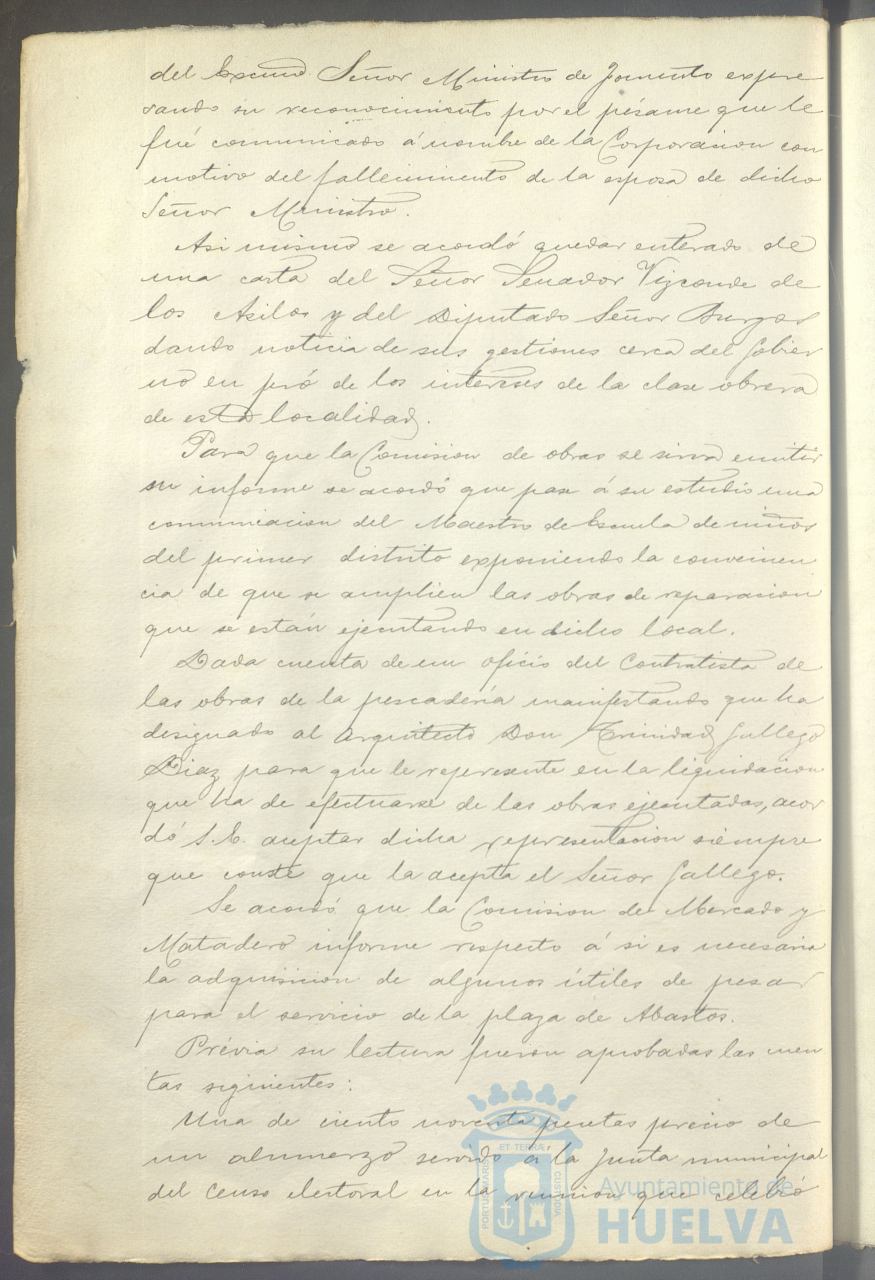 del Excmo. Señor Ministro de Fomento expre
sando su reconocimiento por el pésame que le
fué comunicado á nombre de la Corporacion con
motivo del fallecimiento de la esposa de dicho
Señor Ministro.
Asi mismo se acordó quedar enterado de
una carta del Señor Senador Vizconde de
los Asilos y del Diputado Señor Burgos
dando noticia de sus gestiones cerca del Gobier
no en pró de los intereses de la clase obrera
de esta localidad.
Para que la Comision de obras se sirva emitir
su informe se acordó que pase á su estudio una
comunicacion del Maestro de Escuela de niños
del primer distrito exponiendo la convenien
cia de que se amplien las obras de reparacion
que se están ejecutando en dicho local.
Dada cuenta de un oficio del Contratista de
las obras de la pescadería manifestando que ha
designado al Arquitecto Don Trinidad Gallego
Diaz para que le represente en la liquidacion
que ha de efectuarse de las obras ejecutadas, acor
dó S.E. aceptar dicha representacion siempre
que conste que la acepta el Señor Gallego.
Se acordó que la Comision de Mercado y
Matadero informe respecto á si es necesaria
la adquisicion de algunos útiles de pesar
para el servicio de la plaza de Abastos.
Prévia su lectura fueron aprobadas las cuen
tas siguientes:
Una de ciento noventa pesetas precio de
un almuerzo servido á la Junta municipal
del Censo electoral en la reunion que celebró
ET TERRÆ
PORTUS MARIS
CUSTODIA
Ayuntamiento de
HUELVA